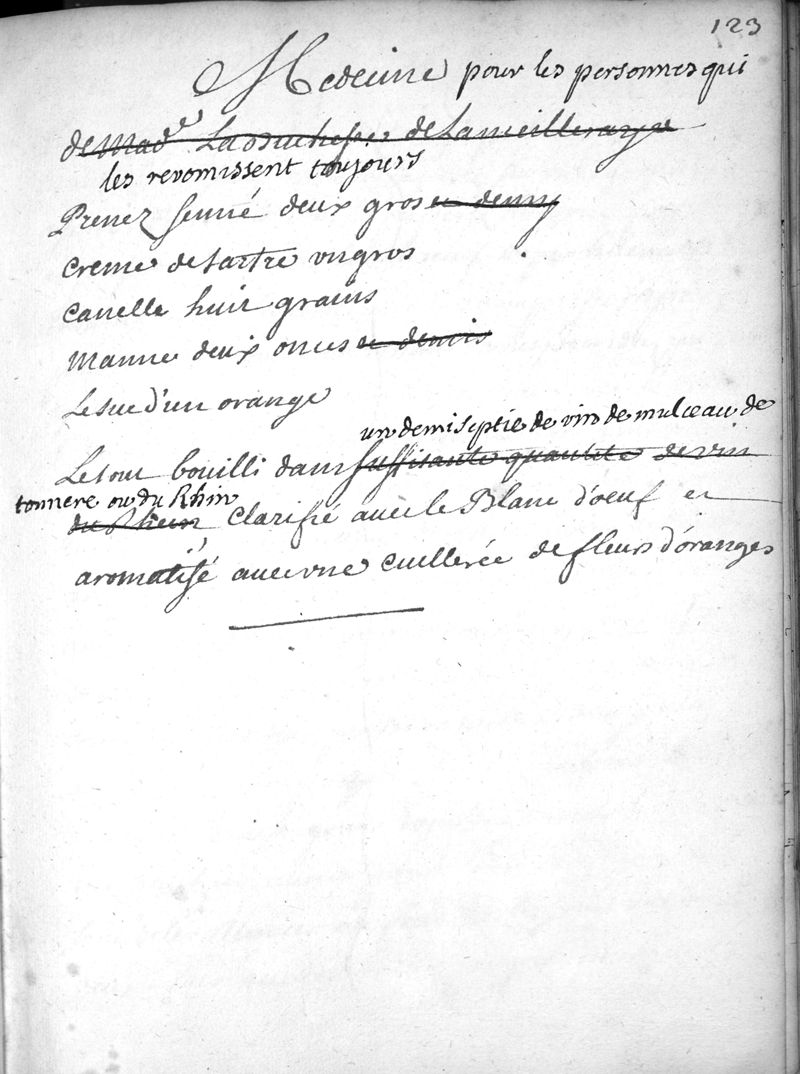 123
Medecine pour les personnes qui
de Made La duchesse de Lameilleraye
les revomissent toujours
Prenez senné deux gros et demy
creme de tartre un gros
canelle huit grains
manne deux onces et demis
Le suc d'un orange
un demi septie de vin de mulceau de
Le tout bouilli dans suffisante quantité de vin
tonnere ou du Rhin
du Rhein clarifié avec le Blanc d'oeuf et
aromatisé avec une cuillerée de fleurs d'oranges